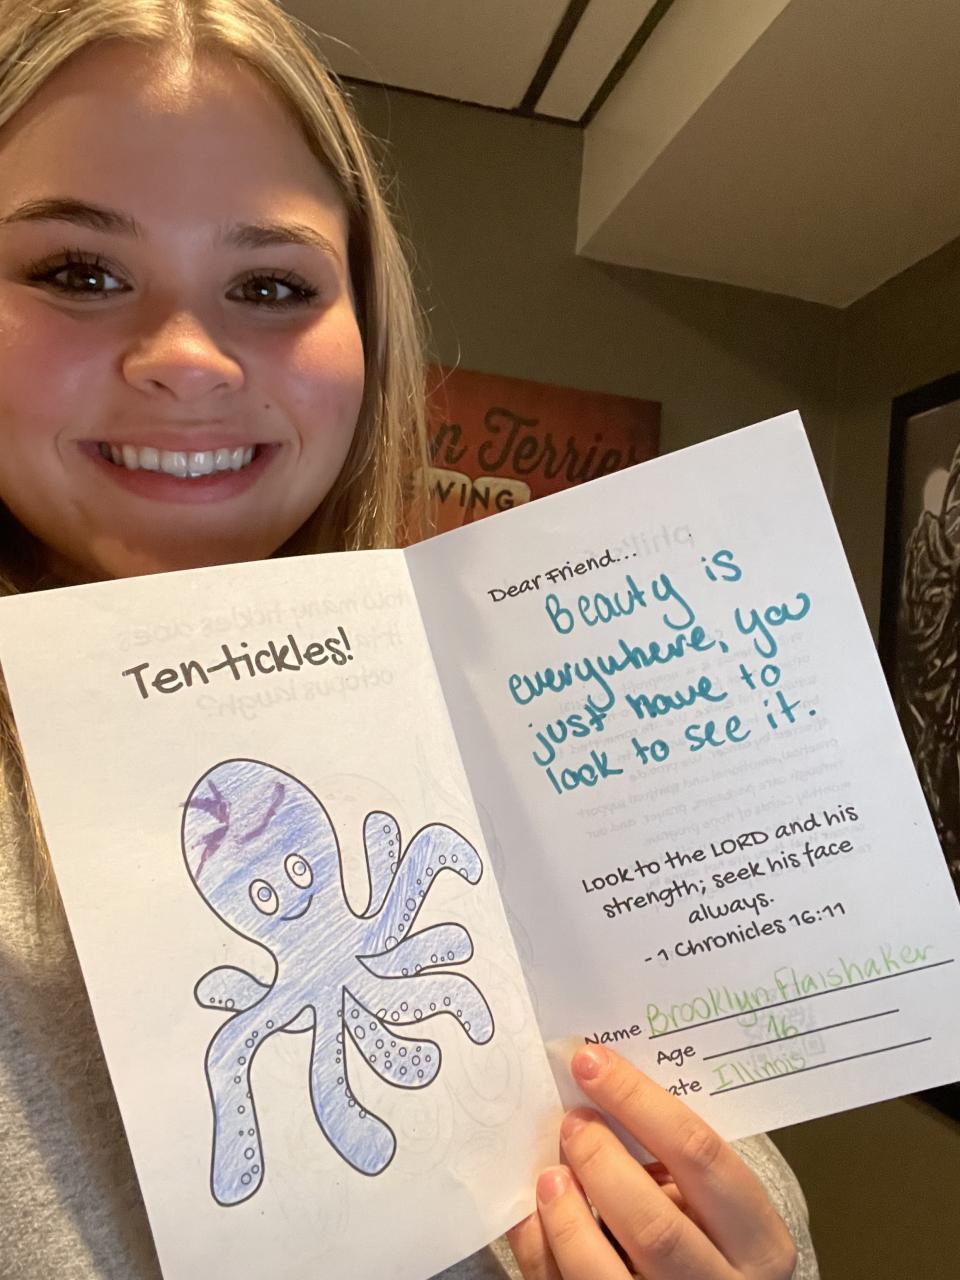 n Terrier
WING
Ten-tickles!
Dear Friend...
Beauty is
everywhere, you
just have to
look to see it.
Look to the LORD and his
strength; seek his face
always.
- 1 Chronicles 16:11
Name Brooklyn Flaishaker
Age 16
ate Illinois